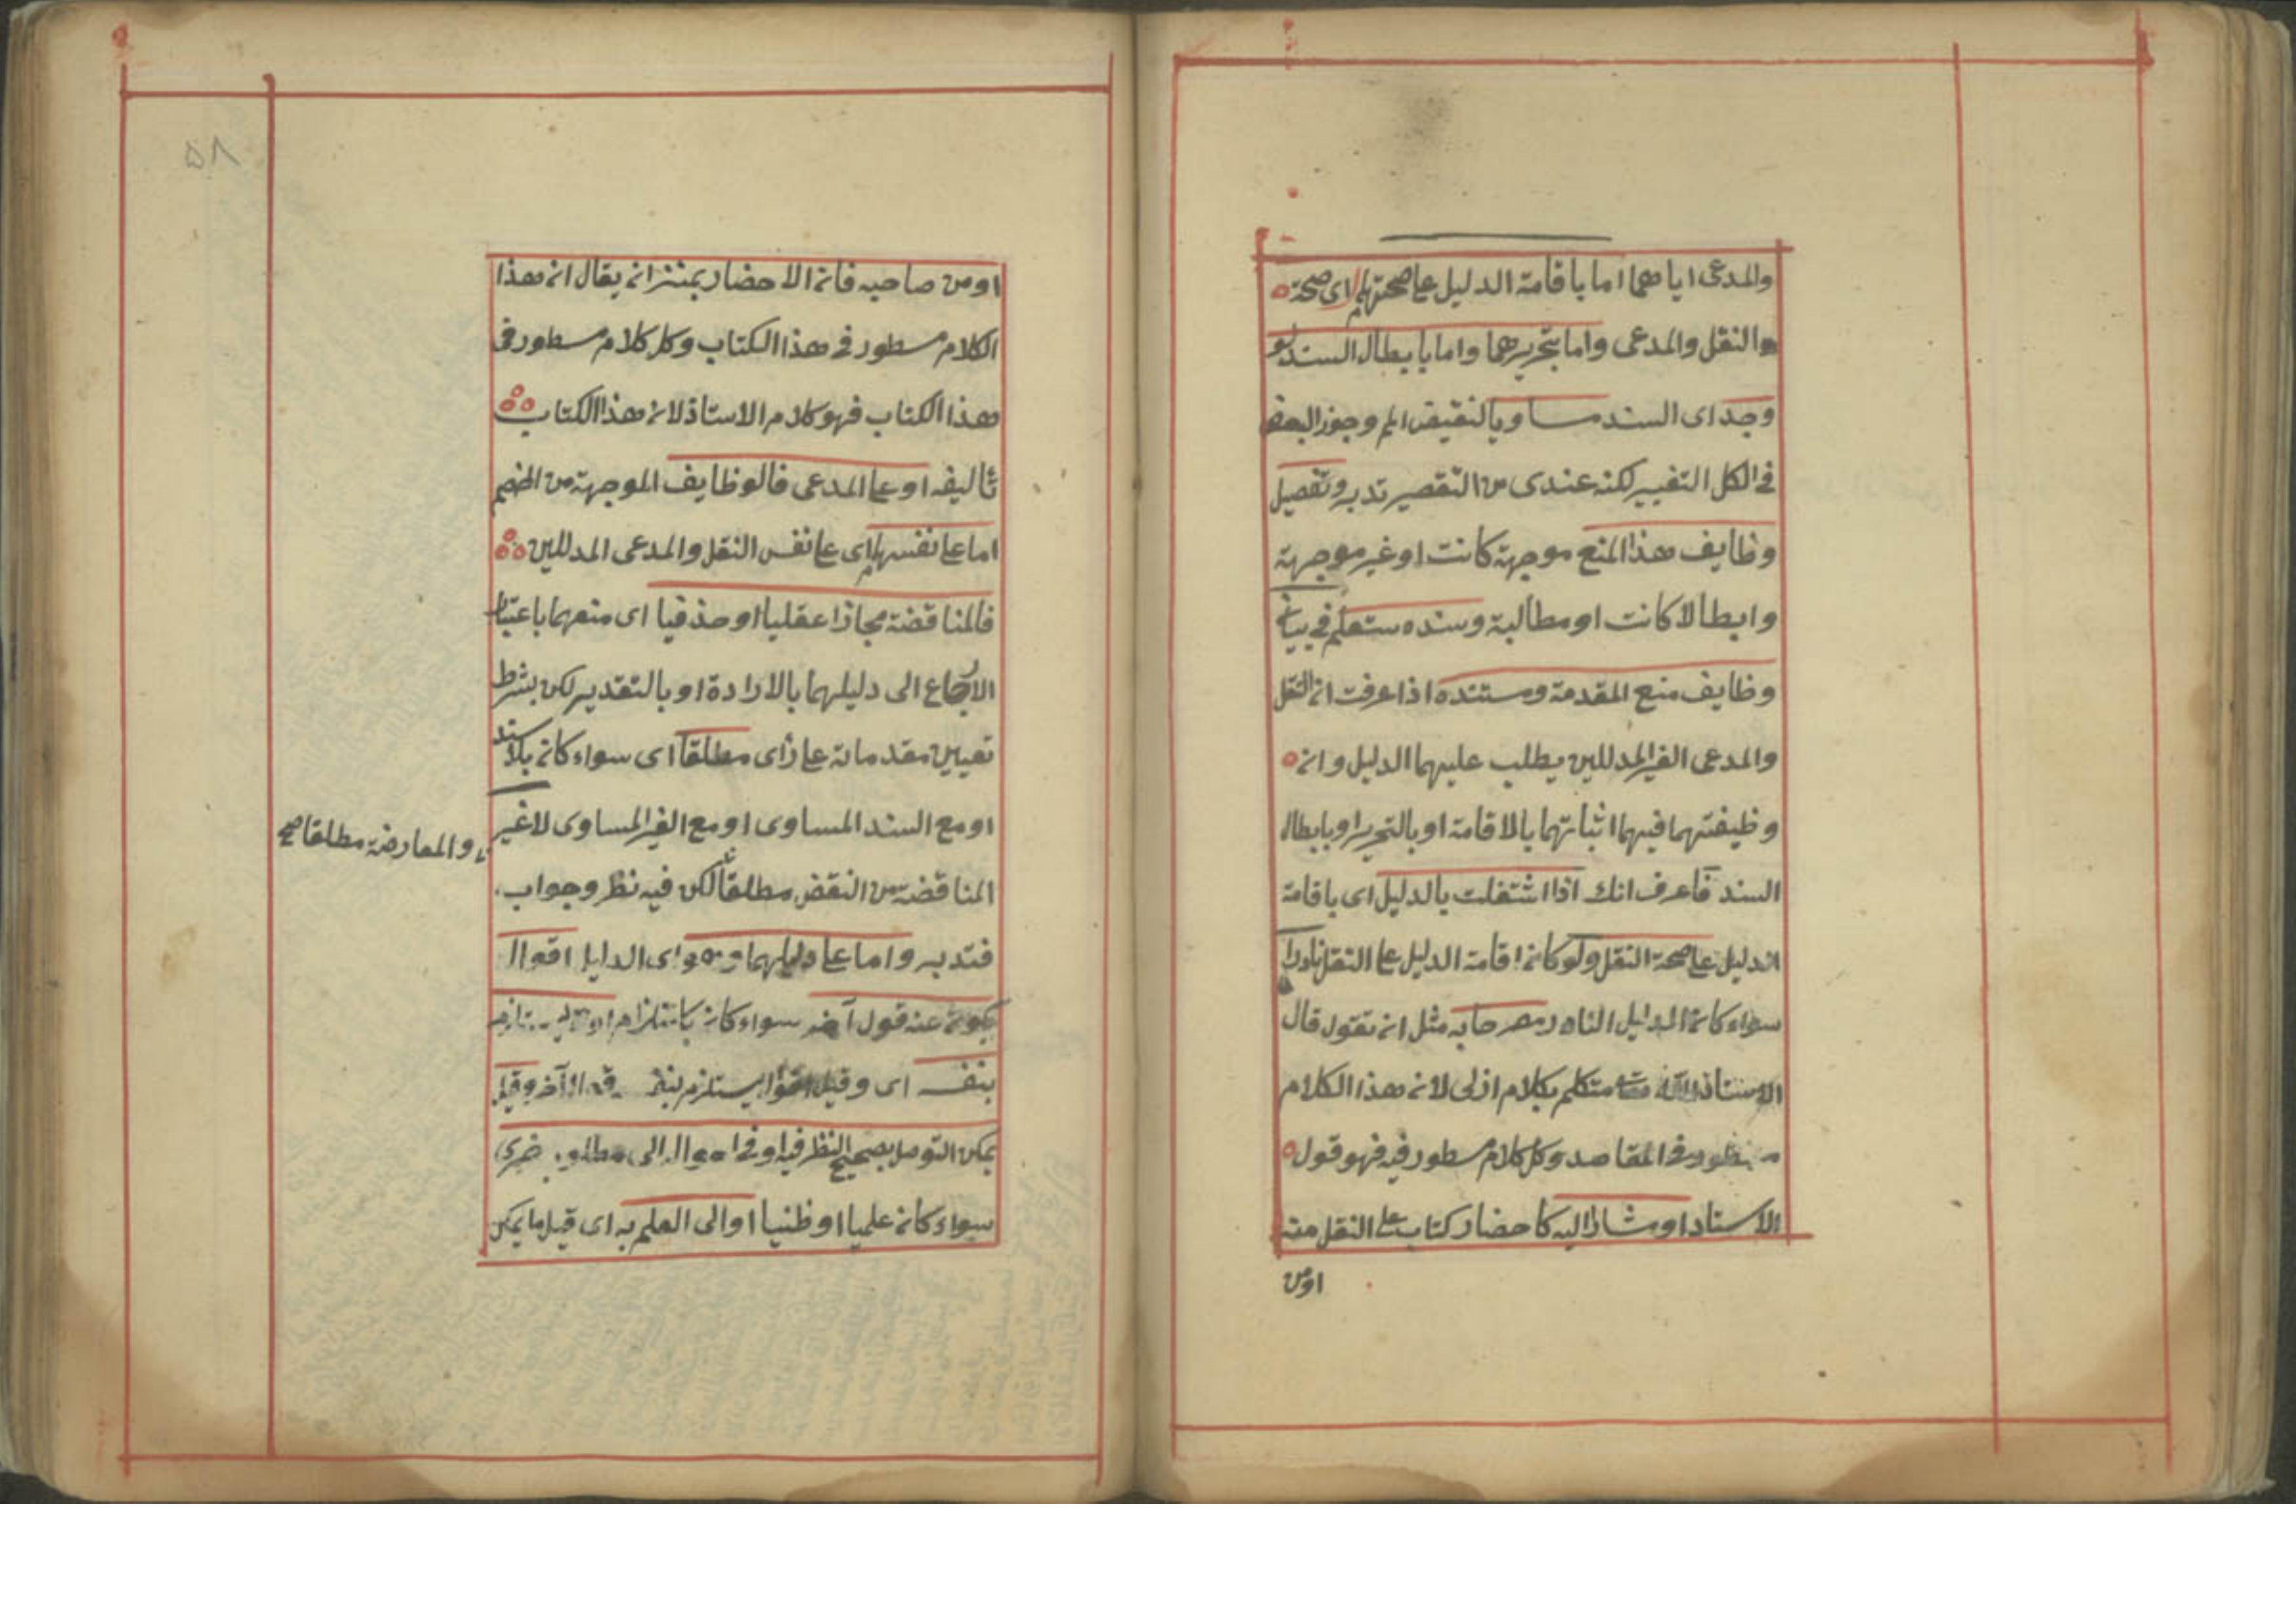 والمدعى اياهما اما باقامة الدليل على صحتهما اى صحة
والنقل والمدعى واما بتحريرهما واما بابطال السند لو
وجد اى السند مساويا لنقيض الم وجوز البعض
فى الكل التغيير لكنه عندى من التقصير تدبر وتفصيل
وظايف هذا المنع موجهة كانت او غير موجهة
وابطالا كانت او مطالبة وسنده ستعلم فى بيان
وظايف منع المقدمة ومستنده اذا عرفت ان النقل
والمدعى الغير المدللين يطلب عليهما الدليل وان
وظيفتهما فيهما اثباتهما بالاقامة او بالتحرير او بابطال
السند فاعرف انك اذا اشتغلت بالدليل اى باقامة
الدليل على صحة النقل ولو كان اقامة الدليل على النقل نادرا
سواء كان الدليل النادر مصرحا به مثل ان تقول قال
الاستاذ الله متكلم بكلام ازلى لان هذا الكلام
مسطور فى المقاصد وكل كلام مسطور فيه فهو قول
الاستاد او مشارا اليه كاحضار كتاب على النقل منه
اومن
٥٨
اومن صاحبه فان الاحضار بمنزلة ان يقال ان هذا
الكلام مسطور فى هذا الكتاب وكل كلام مسطور فى
هذا الكتاب فهو كلام الاستاذ لان هذا الكتاب
تأليفه او على المدعى فالوظايف الموجهة من الخصم
اما على نفسهما اى على نفس النقل والمدعى المدللين
فالمناقضة مجازا عقليا او حذفيا اى منعهما باعتبار
الارجاع الى دليلهما بالارادة او بالتقدير لكن بشرط
تعيين مقدماته على رأى مطلقا اى سواء كان بلا سند
او مع السند المساوى او مع الغير المساوى لا غير
والمعارضة مطلقا صح
المناقضة من النقض مطلقا لكن فيه نظر وجواب
فتدبر واما على دليلهما وهو اى الدليل اقوال
يكون عنه قول آخر سواء كان باستلزام
بنفسه اى وقيل اقوال يستلزم لنفسه قولا آخر وقيل
يمكن التوصل بصحيح النظر فيه او فى احواله الى مطلوب خبرى
سواء كان علميا او ظنيا او الى العلم به اى قيل ما يمكن